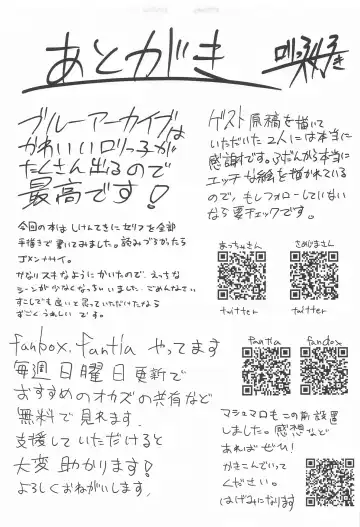 あとがき
ロリっ子好き
ブルーアーカイブは
かわいいロリっ子が
たくさん出るので
最高です!
今回の本はしけんてきにセリフを全部
手描きで書いてみました。読みづらかったら
ゴメンナサイ。
かなりスキなようにかいたので、えっちな
シーンが少なくなっちゃいました。ごめんなさい
すこしでも良いと思っていただけたなら
すごくうれしいです。
ゲスト原稿を描いて
いただいた2人には本当に
感謝です。ふだんから本当に
エッチな絵を描かれている
ので、もしフォローしていない
なら要チェックです。
あっちゅさん
さめじまさん
twitter
twitter
fanbox, fantia やってます
毎週日曜日更新で
おすすめのオカズの共有など
無料で見れます。
支援していただけると
大変助かります!
よろしくおねがいします。
fantia
fanbox
マシュマロもこの前設置
しました。感想など
あればぜひ!
かきこんでいって
ください。
(はげみになります